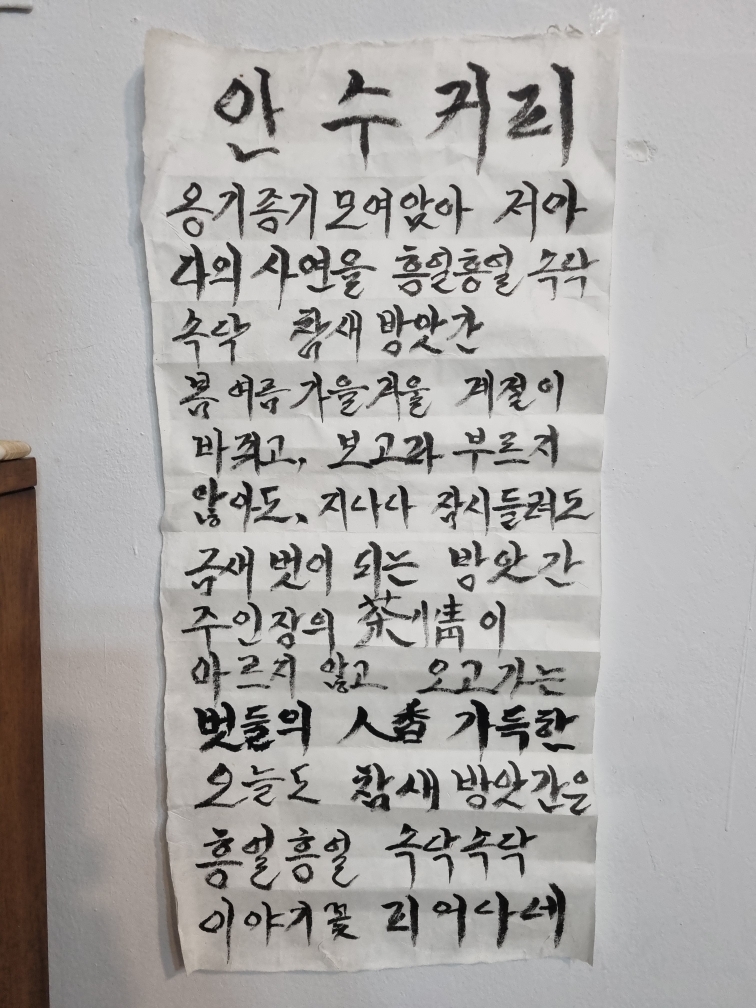 안 수 커 피
옹기종기 모여앉아 저마
다의 사연을 흥얼흥얼 속닥
속닥 참새 방앗간
봄 여름 가을 겨울 계절이
바뀌고, 보고파 부르지
않아도, 지나다 잠시들려도
금새 벗이 되는 방앗간
주인장의 茶情이
마르지 않고 오고가는
벗들의 人香 가득한
오늘도 참새 방앗간은
흥얼흥얼 속닥속닥
이야기꽃 피어나네